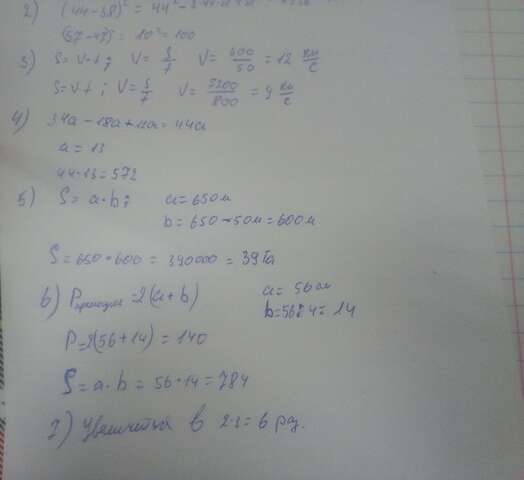 2) (44-38)² = 44² - 2·44·
(57-47)² = 10² = 100
3) S = v·t; V = S/t V = 600/50 = 12 км/с
S = v t; V = S/t V = 7200/800 = 9 км/с
4) 34a - 18a + = 44a
a = 13
44·13 = 572
5) S = a·b; a = 650м
b = 650 - 50м = 600м
S = 650·600 = 390000 = 39 Га
6) P = 2(a+b) a = 56 см
b = 56:4 = 14
P = 2(56+14) = 140
S = a·b = 56·14 = 784
7) Увеличится в 2·3 = 6 раз.